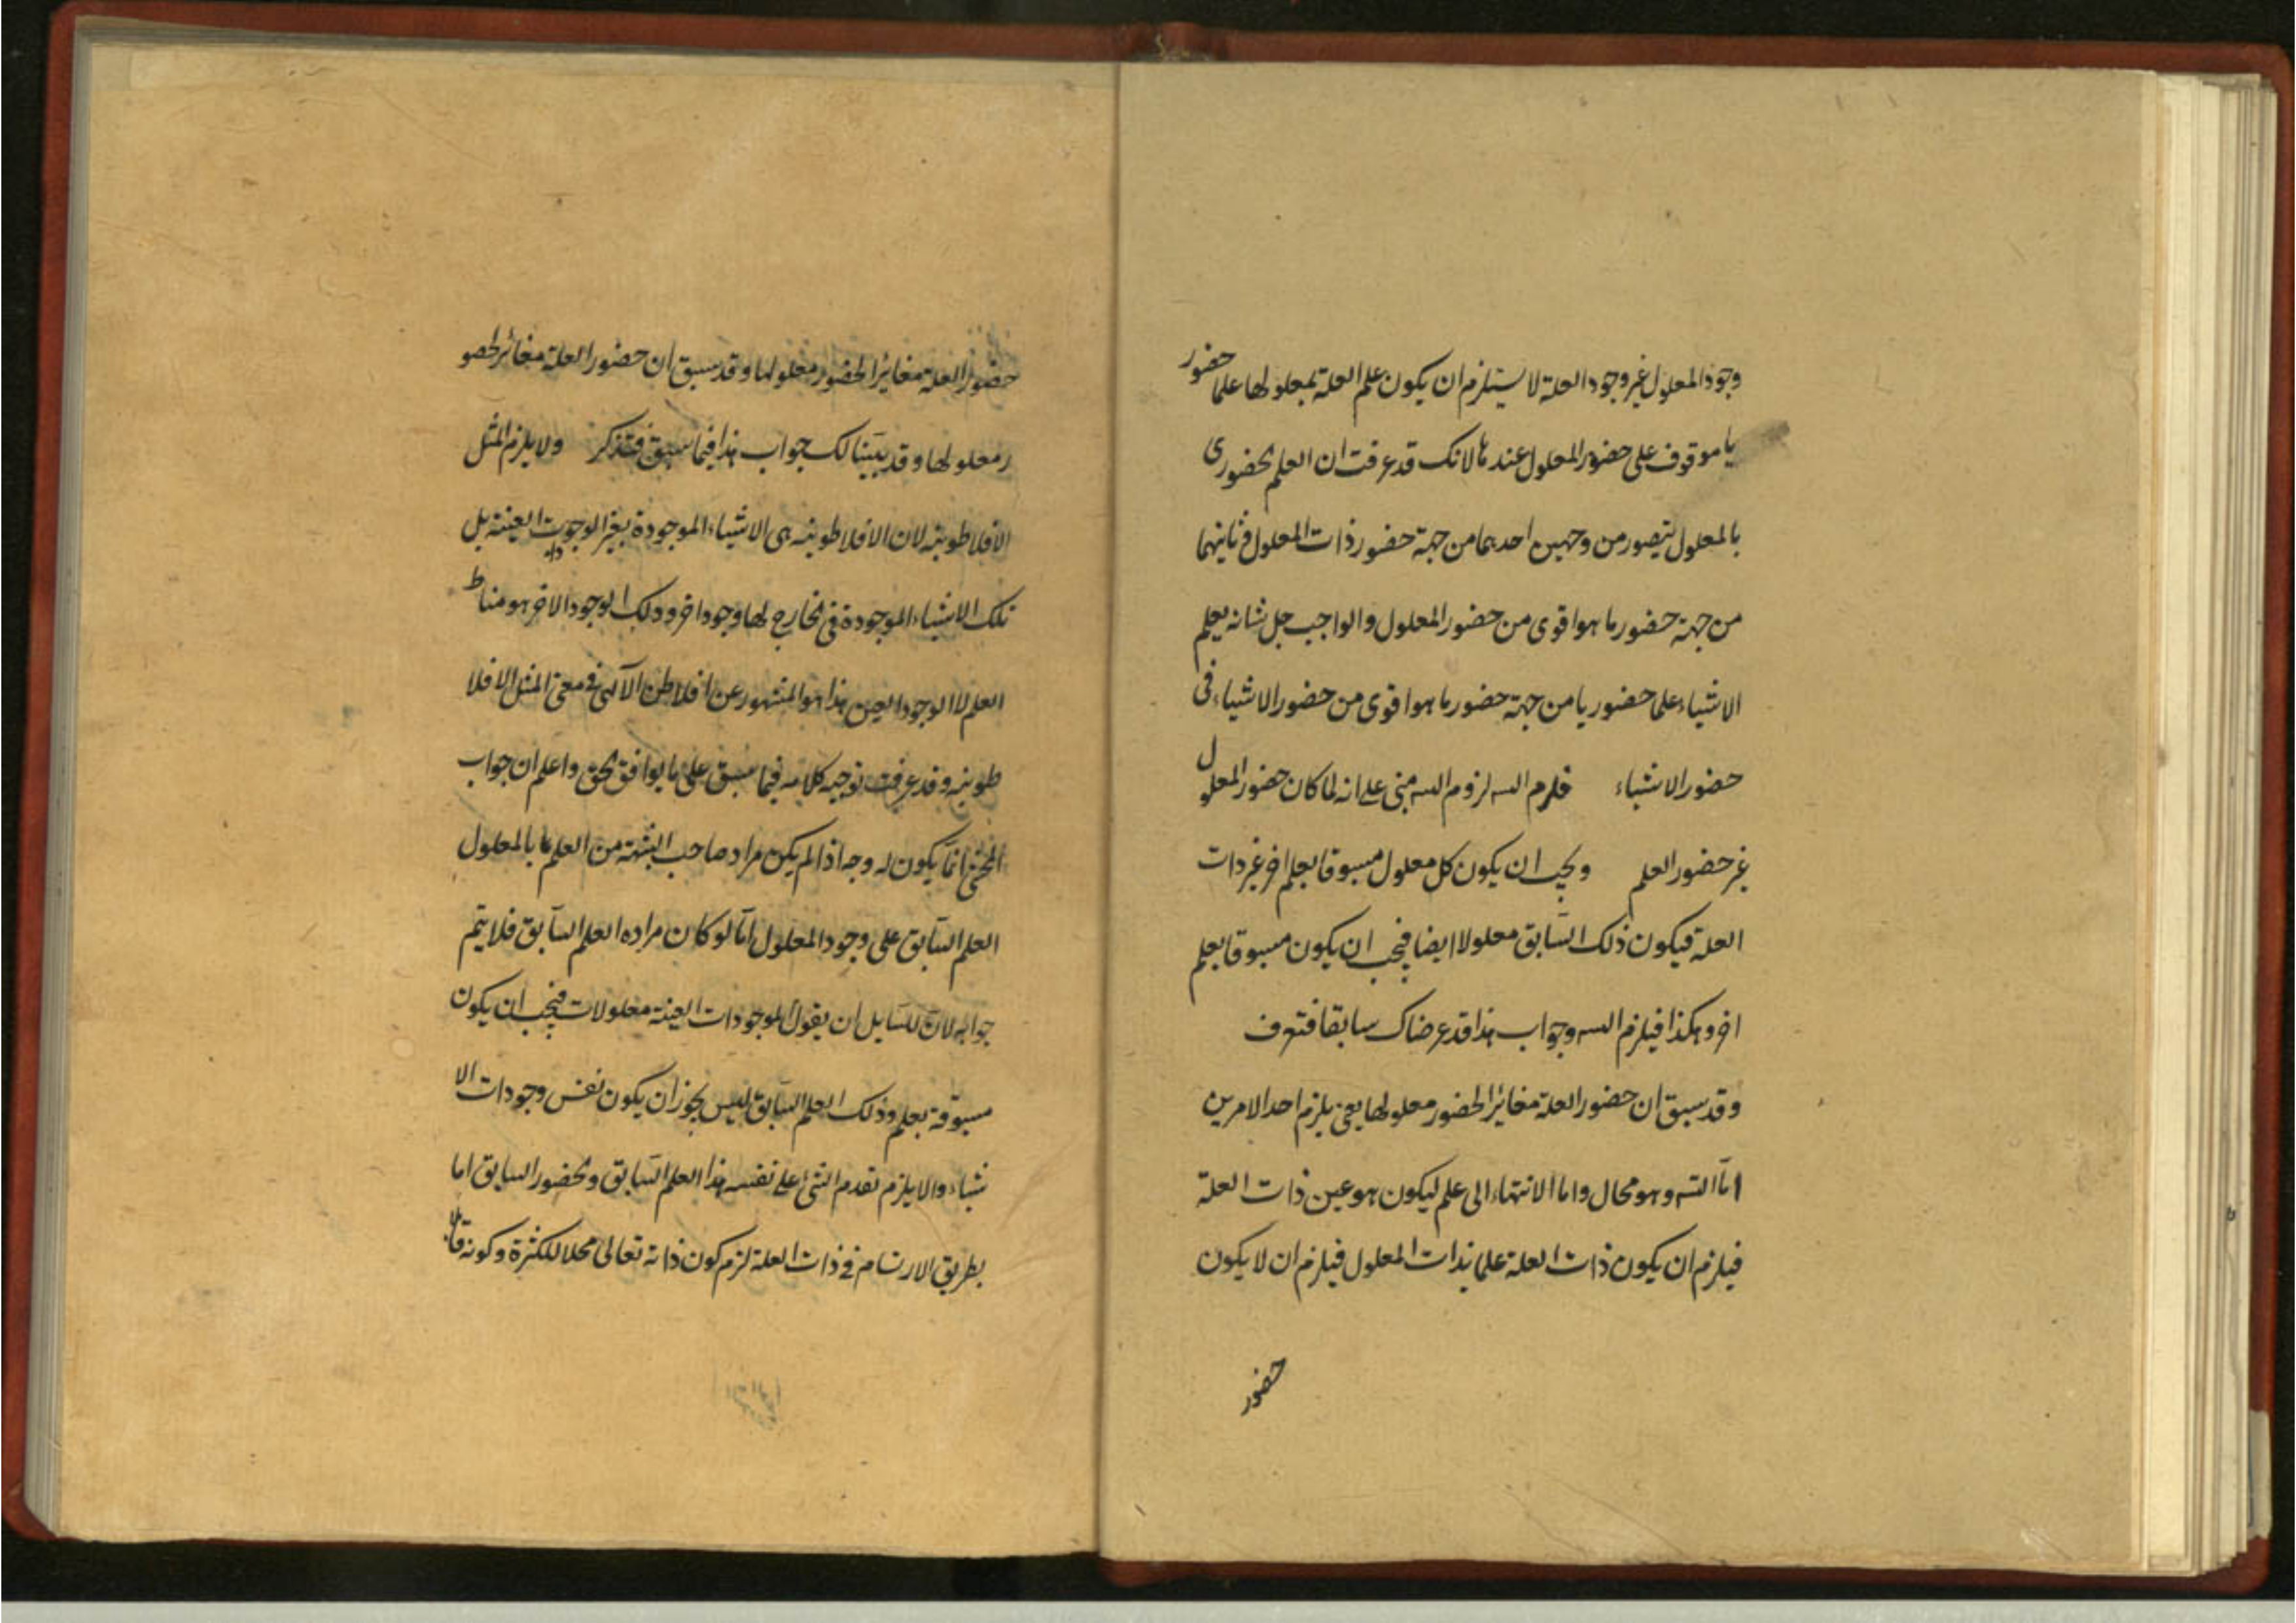 وجود المعلول غير وجود العلة لا يستلزم ان يكون علم العلة بمعلولها علما حضور
يا موقوف على حضور المعلول عندها لانك قد عرفت ان العلم الحضوري
بالمعلول يتصور من وجهين احدهما من جهة حضور ذات المعلول و ثانيهما
من جهة حضور ما هو اقوى من حضور المعلول والواجب جل شانه يعلم
الاشياء علما حضوريا من جهة حضور ما هو اقوى من حضور الاشياء في
حضور الاشياء فلزم التسه لزوم التسه مبنى على انه لما كان حضور المعلول
غير حضور العلم ويجب ان يكون كل معلول مسبوقا بعلم اخر غير ذات
العلة فيكون ذلك السابق معلولا ايضا فيجب ان يكون مسبوقا بعلم
اخر وهكذا فيلزم التسه وجواب هذا قد عرضناك سابقا فتعرف
وقد سبق ان حضور العلة مغائر الحضور معلولها يعني يلزم احد الامرين
اما التسه وهو محال واما الانتهاء الى علم ليكون هو عين ذات العلة
فيلزم ان يكون ذات العلة علما بذات المعلول فيلزم ان لا يكون
حضور
حضور العلة مغائرا لحضور معلولها وقد سبق ان حضور العلة مغائر لحضو
ر معلولها وقد بينا لك جواب هذا فيما سبق فتذكر ولا يلزم المثل
الافلاطونية لان الافلاطونية هى الاشياء الموجودة بغير الوجودات العينية بل
تلك الاشياء الموجودة في الخارج لها وجود اخر وذلك الوجود الاخر هو مناط
العلم لا الوجود العين هذا هو المشهور عن افلاطن الآلهى في معنى المثل الافلا
طونية وقد عرفت توجيه كلامه فيما سبق على ما يوافق الحق واعلم ان جواب
المحشى انما يكون له وجه اذا لم يكن مراد صاحب الشبهة من العلم بالمعلول
العلم السابق على وجود المعلول اما لو كان مراده العلم السابق فلا يتم
جوابه لان للسايل ان يقول الموجودات العينية معلولات فيجب ان يكون
مسبوقة بعلم وذلك العلم السابق ليس يجوز ان يكون نفس وجودات الا
شياء والا يلزم تقدم الشئ على نفسه فهذا العلم السابق والحضور السابق اما
بطريق الارتسام في ذات العلة لزم كون ذاته تعالى محلا للكثرة وكونه قابلا